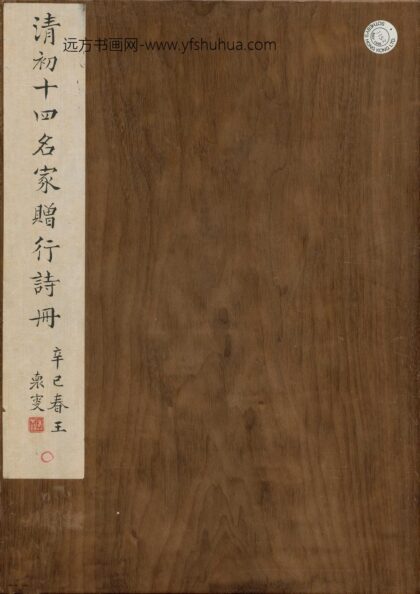 清初十四名家贈行詩冊
辛巳春王
泉叟
远方书画网-www.yfshuhua.com